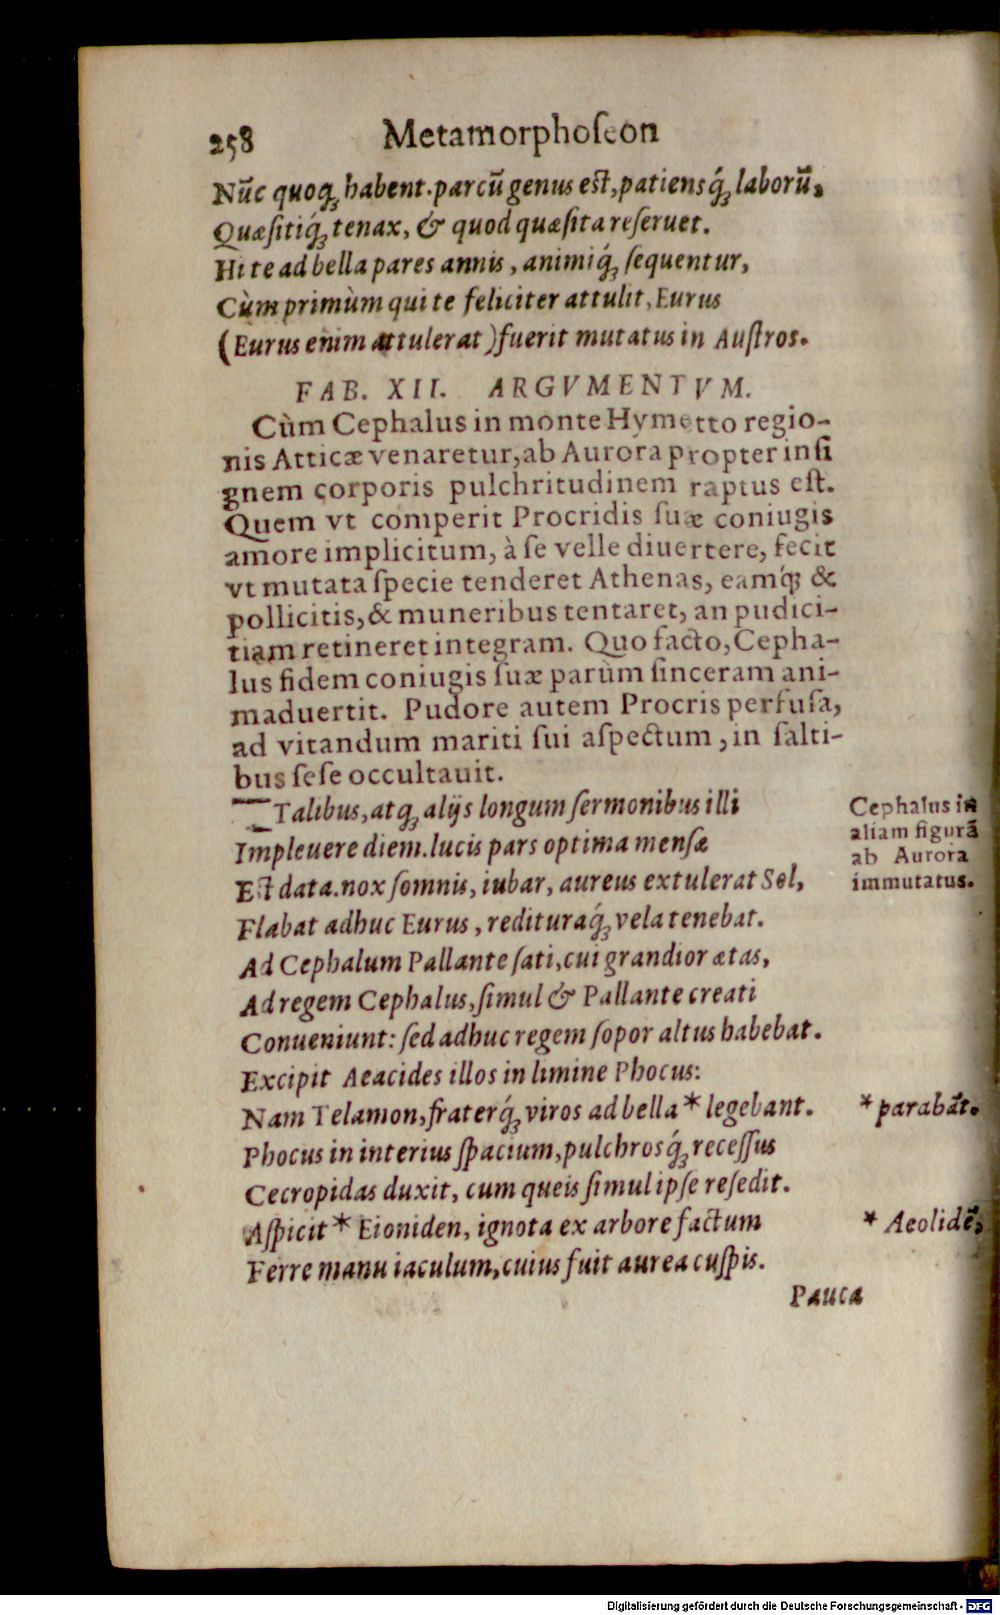 258 Metamorphoſeon
Nūc quoq́; habent. parcū genus eſt, patiensq́; laborū,
Quæſitiq́; tenax, & quod quæſita reſeruet.
Hi te ad bella pares annis, animiq́; ſequentur,
Cùm primùm qui te feliciter attulit, Eurus
(Eurus enim attulerat) fuerit mutatus in Auſtros.
FAB. XII. ARGVMENTVM.
Cùm Cephalus in monte Hymetto regio-
nis Atticæ venaretur, ab Aurora propter inſi
gnem corporis pulchritudinem raptus eſt.
Quem vt comperit Procridis ſuæ coniugis
amore implicitum, à ſe velle diuertere, fecit
vt mutata ſpecie tenderet Athenas, eamq́; &
pollicitis, & muneribus tentaret, an pudici-
tiam retineret integram. Quo facto, Cepha-
lus fidem coniugis ſuæ parùm ſinceram ani-
maduertit. Pudore autem Procris perfuſa,
ad vitandum mariti ſui aſpectum, in ſalti-
bus ſeſe occultauit.
Talibus, atq; alijs longum ſermonibus illi
Impleuere diem. lucis pars optima menſæ
Eſt data. nox ſomnis, iubar, aureus extulerat Sol,
Flabat adhuc Eurus, redituraq́; vela tenebat.
Ad Cephalum Pallante ſati, cui grandior ætas,
Ad regem Cephalus, ſimul & Pallante creati
Conueniunt: ſed adhuc regem ſopor altus habebat.
Excipit Aeacides illos in limine Phocus:
Nam Telamon, fraterq́; viros ad bella * legebant.
Phocus in interius ſpacium, pulchrosq́; receſſus
Cecropidas duxit, cum queis ſimul ipſe reſedit.
Aſpicit * Eioniden, ignota ex arbore factum
Ferre manu iaculum, cuius fuit aurea cuſpis.
Pauca
Cephalus in
aliam figurā
ab Aurora
immutatus.
* parabāt.
* Aeolidē,
Digitalisierung gefördert durch die Deutsche Forschungsgemeinschaft - DFG